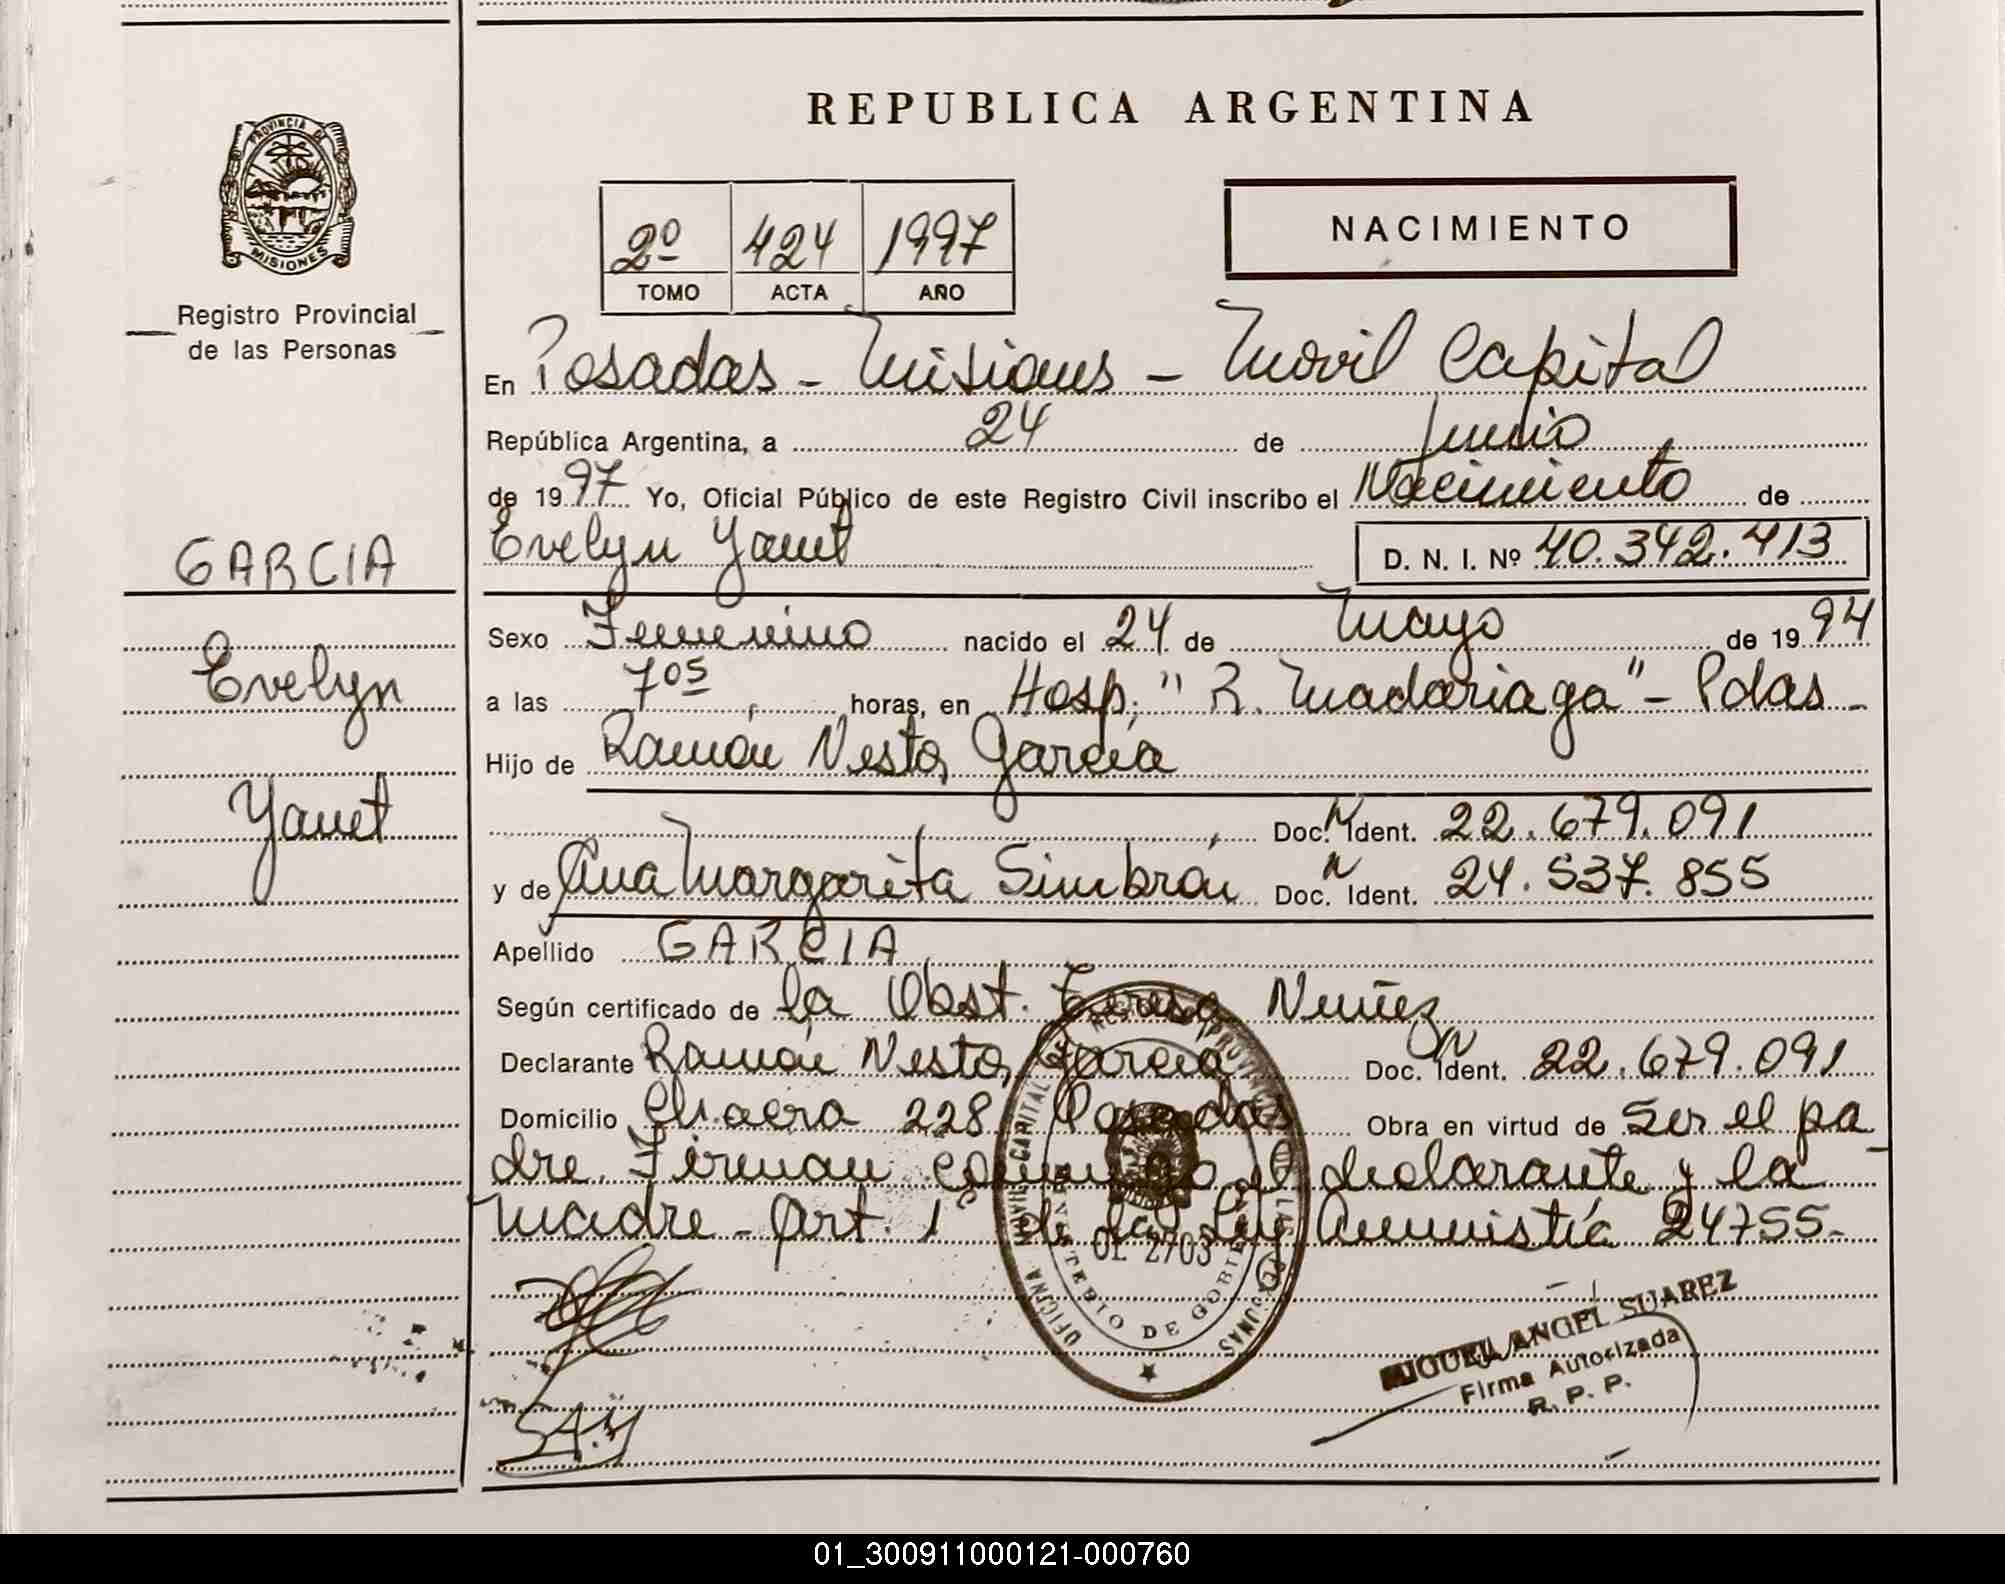 PROVINCIA DE
MISIONES
Registro Provincial
de las Personas
GARCIA
Evelyn
Yanet
REPUBLICA ARGENTINA
2º 424 1997
TOMO ACTA AÑO
NACIMIENTO
En Posadas - Misiones - Móvil Capital
República Argentina, a 24 de Junio
de 1997 Yo, Oficial Público de este Registro Civil inscribo el Nacimiento de
Evelyn Yanet D. N. I. Nº 40.342.413
Sexo Femenino nacido el 24 de Mayo de 1994
a las 7 05 horas, en Hosp. "R. Madariaga" - Pdas -
Hijo de Ramón Nestor García
Doc. N Ident. 22.679.091
y de Ana Margarita Simbrón Doc. N Ident. 24.537.855
Apellido GARCIA
Según certificado de la Obst. Teresa Nuñez
Declarante Ramón Nestor García Doc. N Ident. 22.679.091
Domicilio Chacra 228 Posadas Obra en virtud de Ser el pa-
dre. Firman conmigo el declarante y la
Madre - Art. 1º de la Ley Amnistía 24755.-
OFICINA MOVIL CAPITAL
MINISTERIO DE GOBIERNO
OL 2703
MIGUEL ANGEL SUAREZ
Firma Autorizada
R. P. P.
01_300911000121-000760